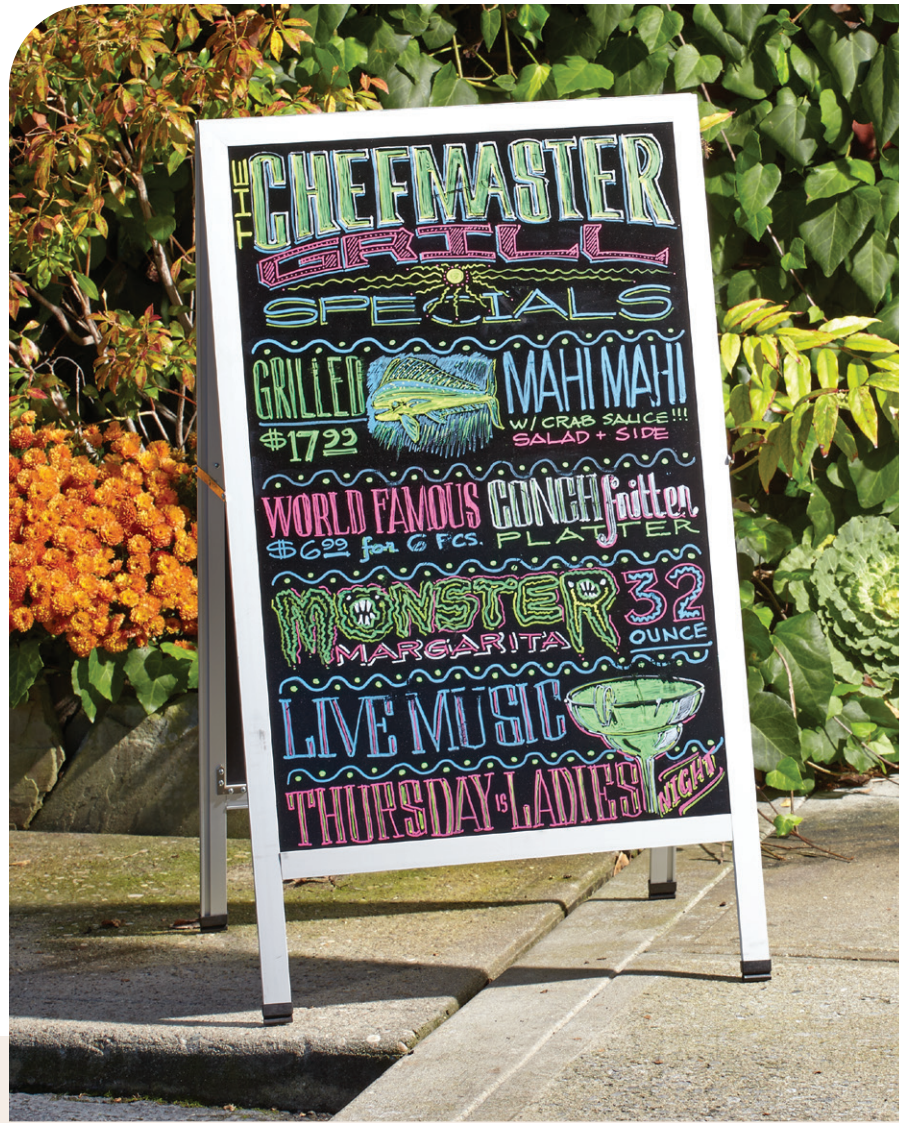 THE CHEFMASTER
GRILL
SPECIALS
GRILLED MAHI MAHI
$17.99 W/ CRAB SAUCE!!!
SALAD + SIDE
WORLD FAMOUS CONCH fritter
$6.99 for 6 PCS. PLATTER
MONSTER 32
MARGARITA OUNCE
LIVE MUSIC
THURSDAY IS LADIES NIGHT